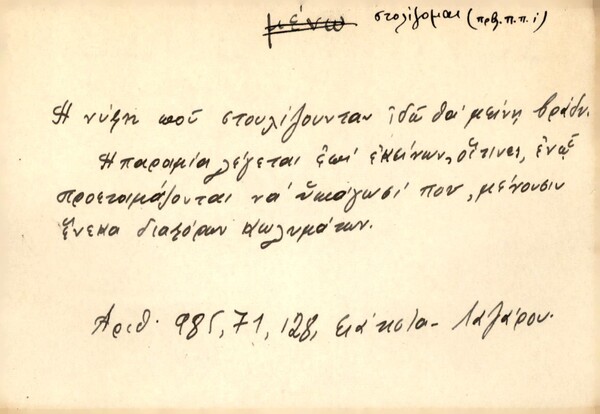 μένω στολίζομαι (πρβ. π. π. ί)
Ἡ νύφη ποῦ στουλίζουνταν ἰδῶ θά μείνῃ βράδυ.
Ἡ παροιμία λέγεται ἐπί ἐκείνων, οἵτινες, ἐνῷ
προετοιμάζονται νά ὑπάγωσί που, μένουσιν
ἕνεκα διαφόρων κωλυμάτων.
Ἀριθ. 985, 71, 128, Σιάτιστα - Λαζάρου.